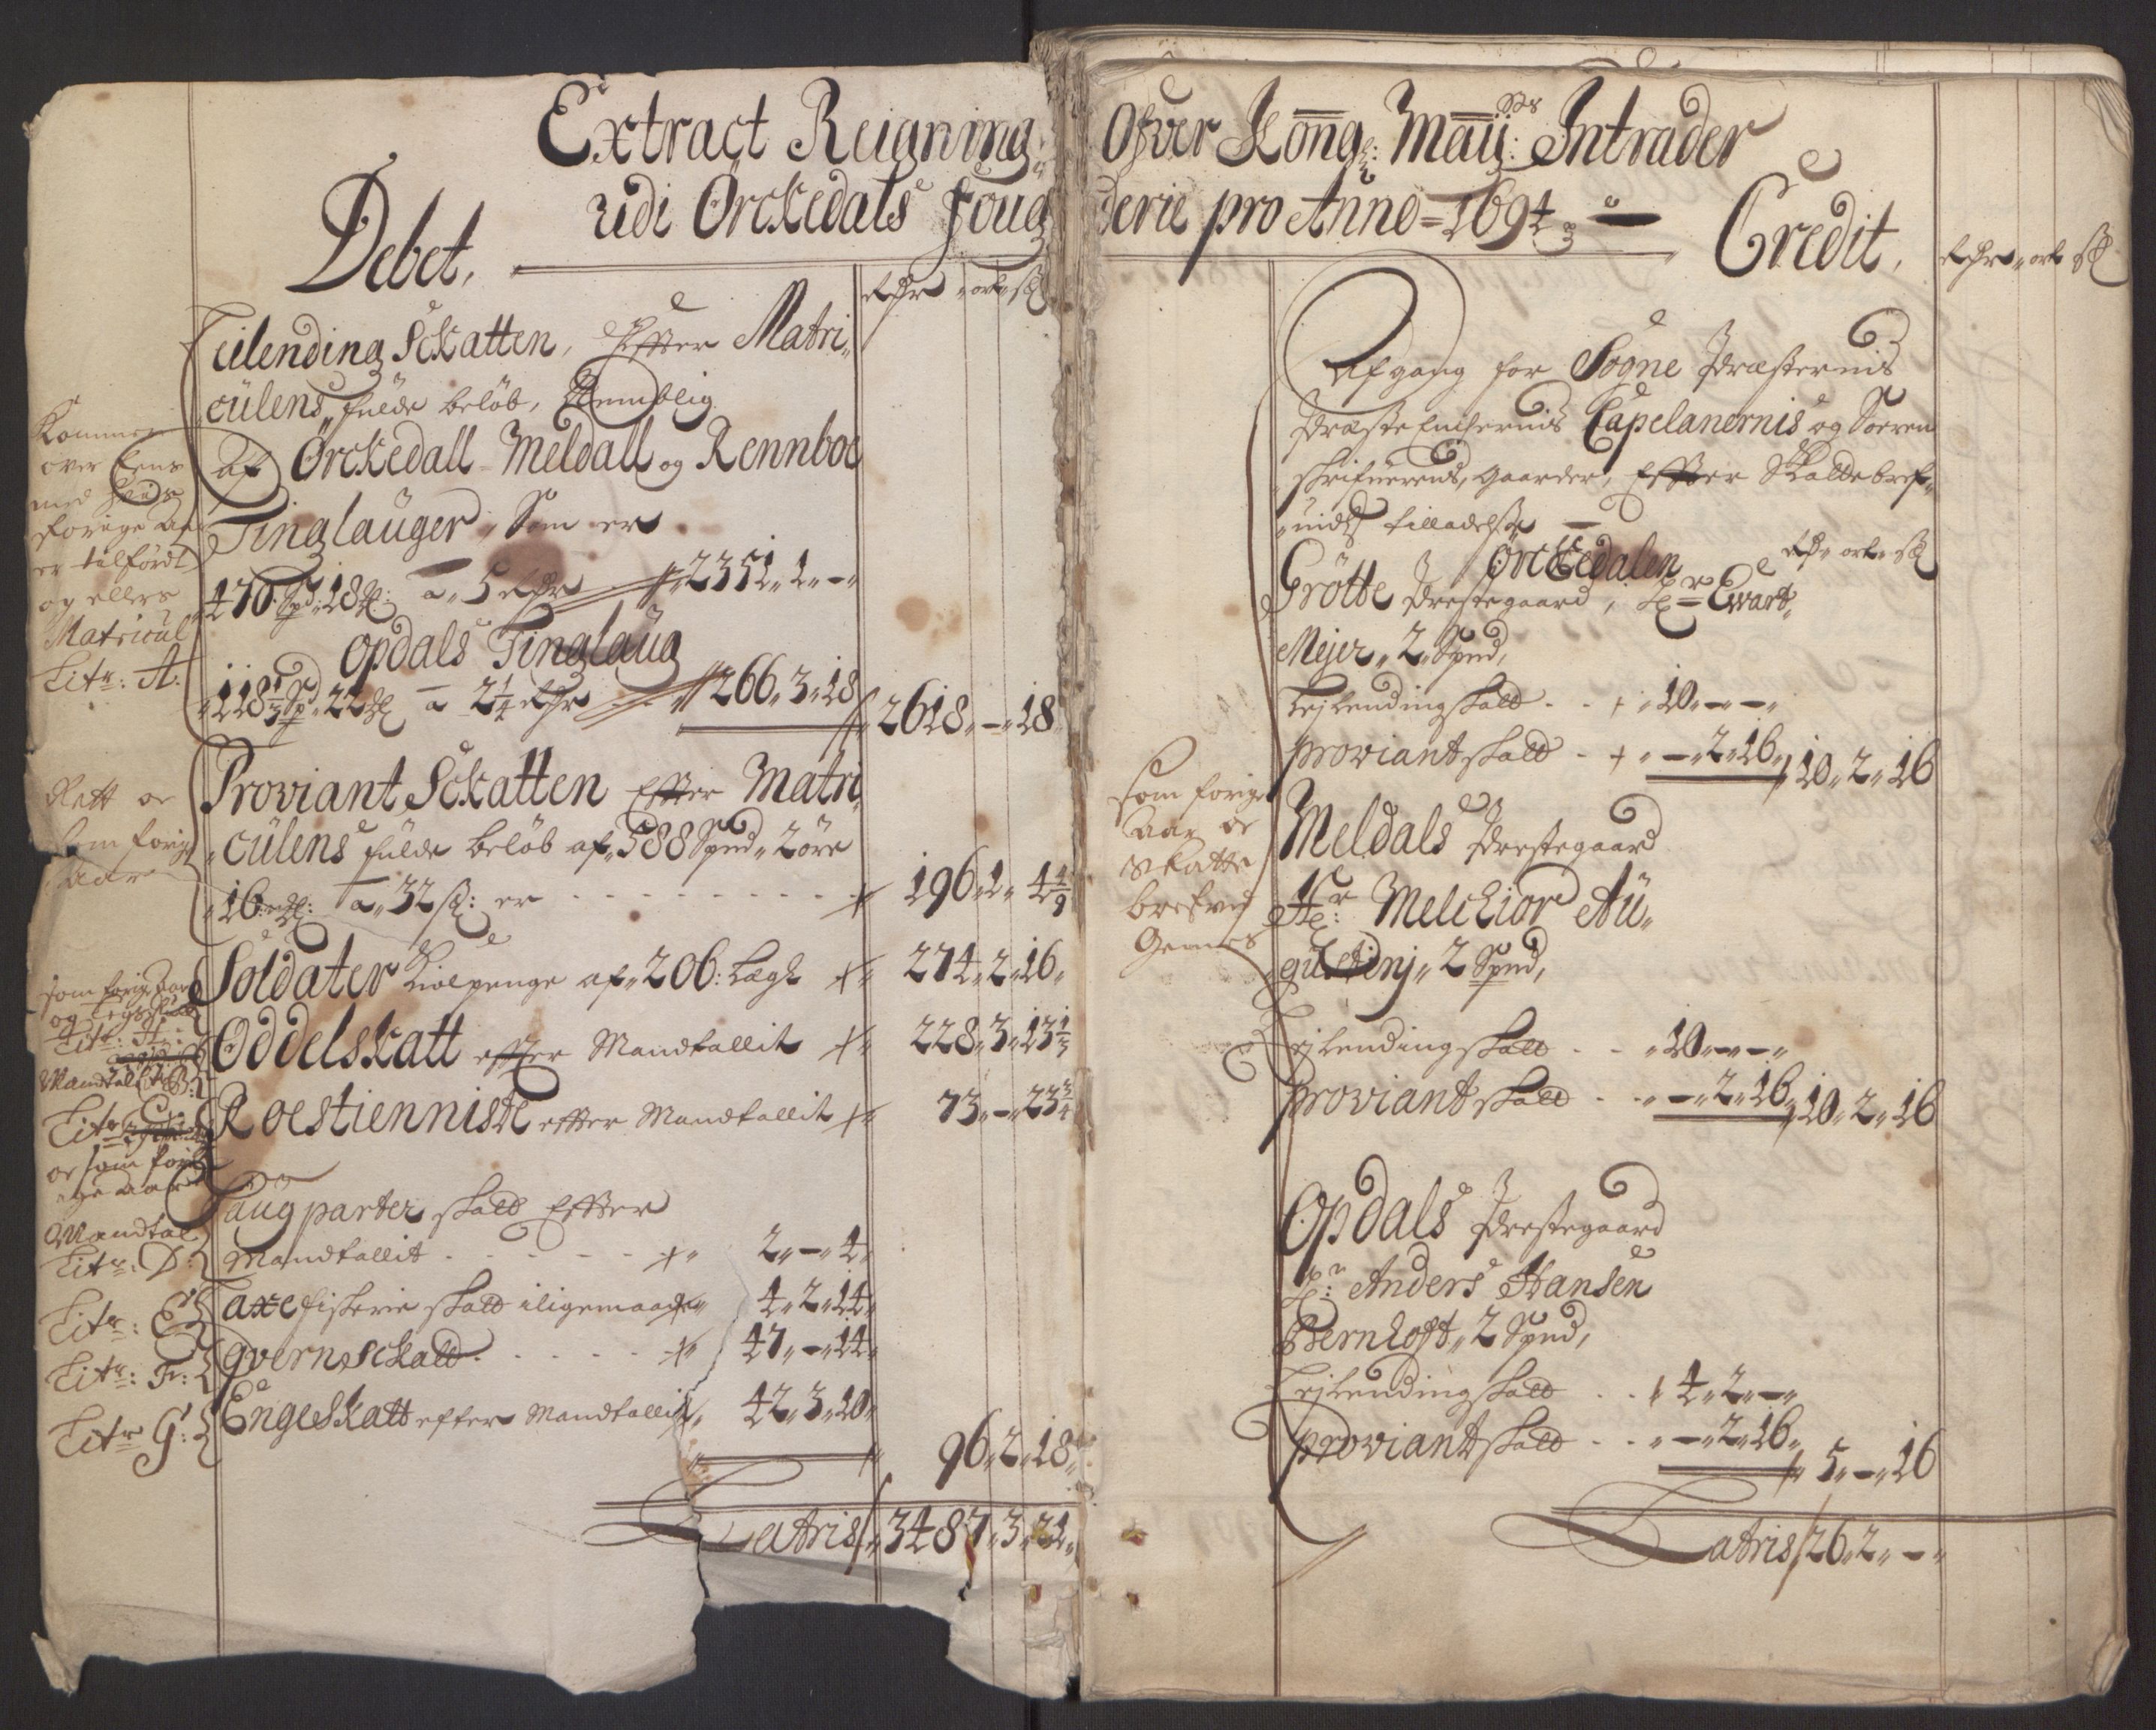 Extract Reigning Ofver Kong: Maÿ:ts Intrader
udi Orckedals fougderie pro Anno = 1694
Debet,
rdr ort sz
Leilending Schatten, Effter Matri„
culens fulde beløb, Nemblig
af Orckedall Meldall og Rennboe
Tinglauger, Som er
470 Spd 18 mz: a 5 rdr 2351„ 1„ -„
Opdals Tinglaug
118 1/3 Spd 22 mz a 2 1/4 rdr 266„ 3„ 18
2618„ -„ 18
Proviant Schatten Effter Matri„
culens fulde beløb af„ 588 Spnd„ 2 öre
16 mz: a„ 32 sz: er - - - 196„ 1„ 4 4/9
Soldater Kiolpenge af„ 206: Lægh 274„ 2„ 16„
Oddelskatt effter Mandtallit 228„ 3„ 13 1/3
Roestienniste effter Mandtallit 73„ -„ 23 3/4
Laugparter skatt Effter
Mandtallit - - - 2„ -„ 4„
Laxe fiskerie skatt iligemaade 4„ 2„ 14„
Qvernschatt - - - 47„ -„ 14„
Engeskatt efter Mandtallit 42„ 3„ 10„
96„ 2„ 18„
Latris 3487„ 3„ 21„
Kommer
over Eens
med hvis
forige Aar
er tilførdt
og ellers
Matricul
Litr: A.
Rett er
som forige
Aar
som forige Aar
og Legs
Litr: H:
Mandtal Litr B:
Litr C
er som for
ige aar
Mandtal
Litr: D:
Litr: E
Litr: F:
Litr G:
Credit,
rdr ort sz
Afgang for Sogne Præsternis
Præste Enchernis Capelanernis og Soeren
skrifuerens, Gaarder, Effter Skattebref„
„vids tilladelse
Orckedalen rdr ort sz
Grötte Prestegaard, Hr Ewart
Mejer„ 2 Spnd,
Lejlendingskatt - - „10„ -„ -„
proviantskatt - „ -„ 2„ 16„ 10„ 2„ 16
Meldals Prestegaard
Hr: Melchior Au„
gustinj„ 2 Spnd,
Lejlendingskatt - - „10„ -„ -„
proviantskatt - - „ -„ 2„ 16„ 10„ 2„ 16
Opdals Prestegaard
Hr: Anders Hansen
Bernhoft„ 2 Spnd,
Lejlendingskatt - - „ 4„ 2„ -„
proviantskatt - - „ -„ 2„ 16„ 5„ -„ 16
Latris 26„ 2„ -„
som forige
Aar er
skatte
brefved
Gemes